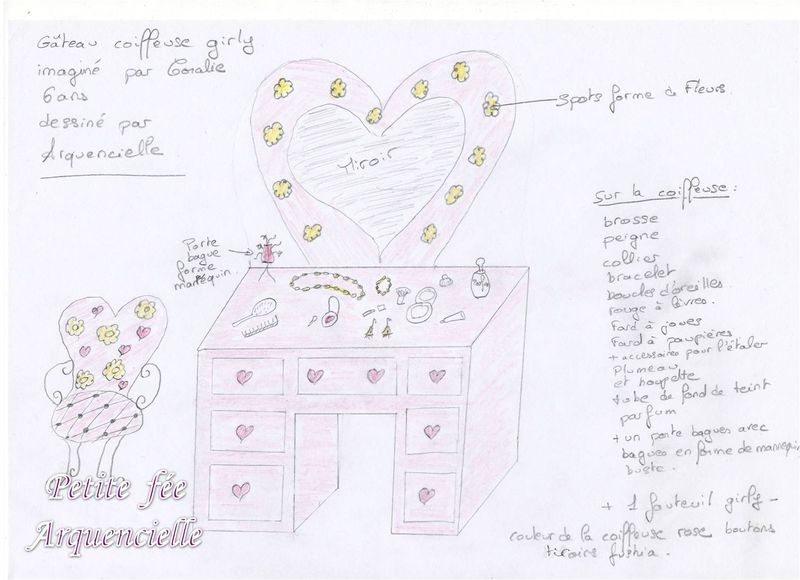 Gâteau coiffeuse girly
imaginé par Coralie
6 ans
dessiné par
Arquencielle
Spots forme de Fleurs.
Miroir
Porte
bague
forme
mannequin.
Sur la coiffeuse :
brosse
peigne
collier
bracelet
boucles d'oreilles.
rouge à lèvres.
Fard à joues
Fard à paupières
+ accessoires pour l'étaler
Plumeau
et houpette
tube de fond de teint
parfum
+ un porte bagues avec
bagues en forme de mannequin
buste.
+ 1 fauteuil girly -
couleur de la coiffeuse rose boutons
tiroirs fushia.
Petite fée
Arquencielle